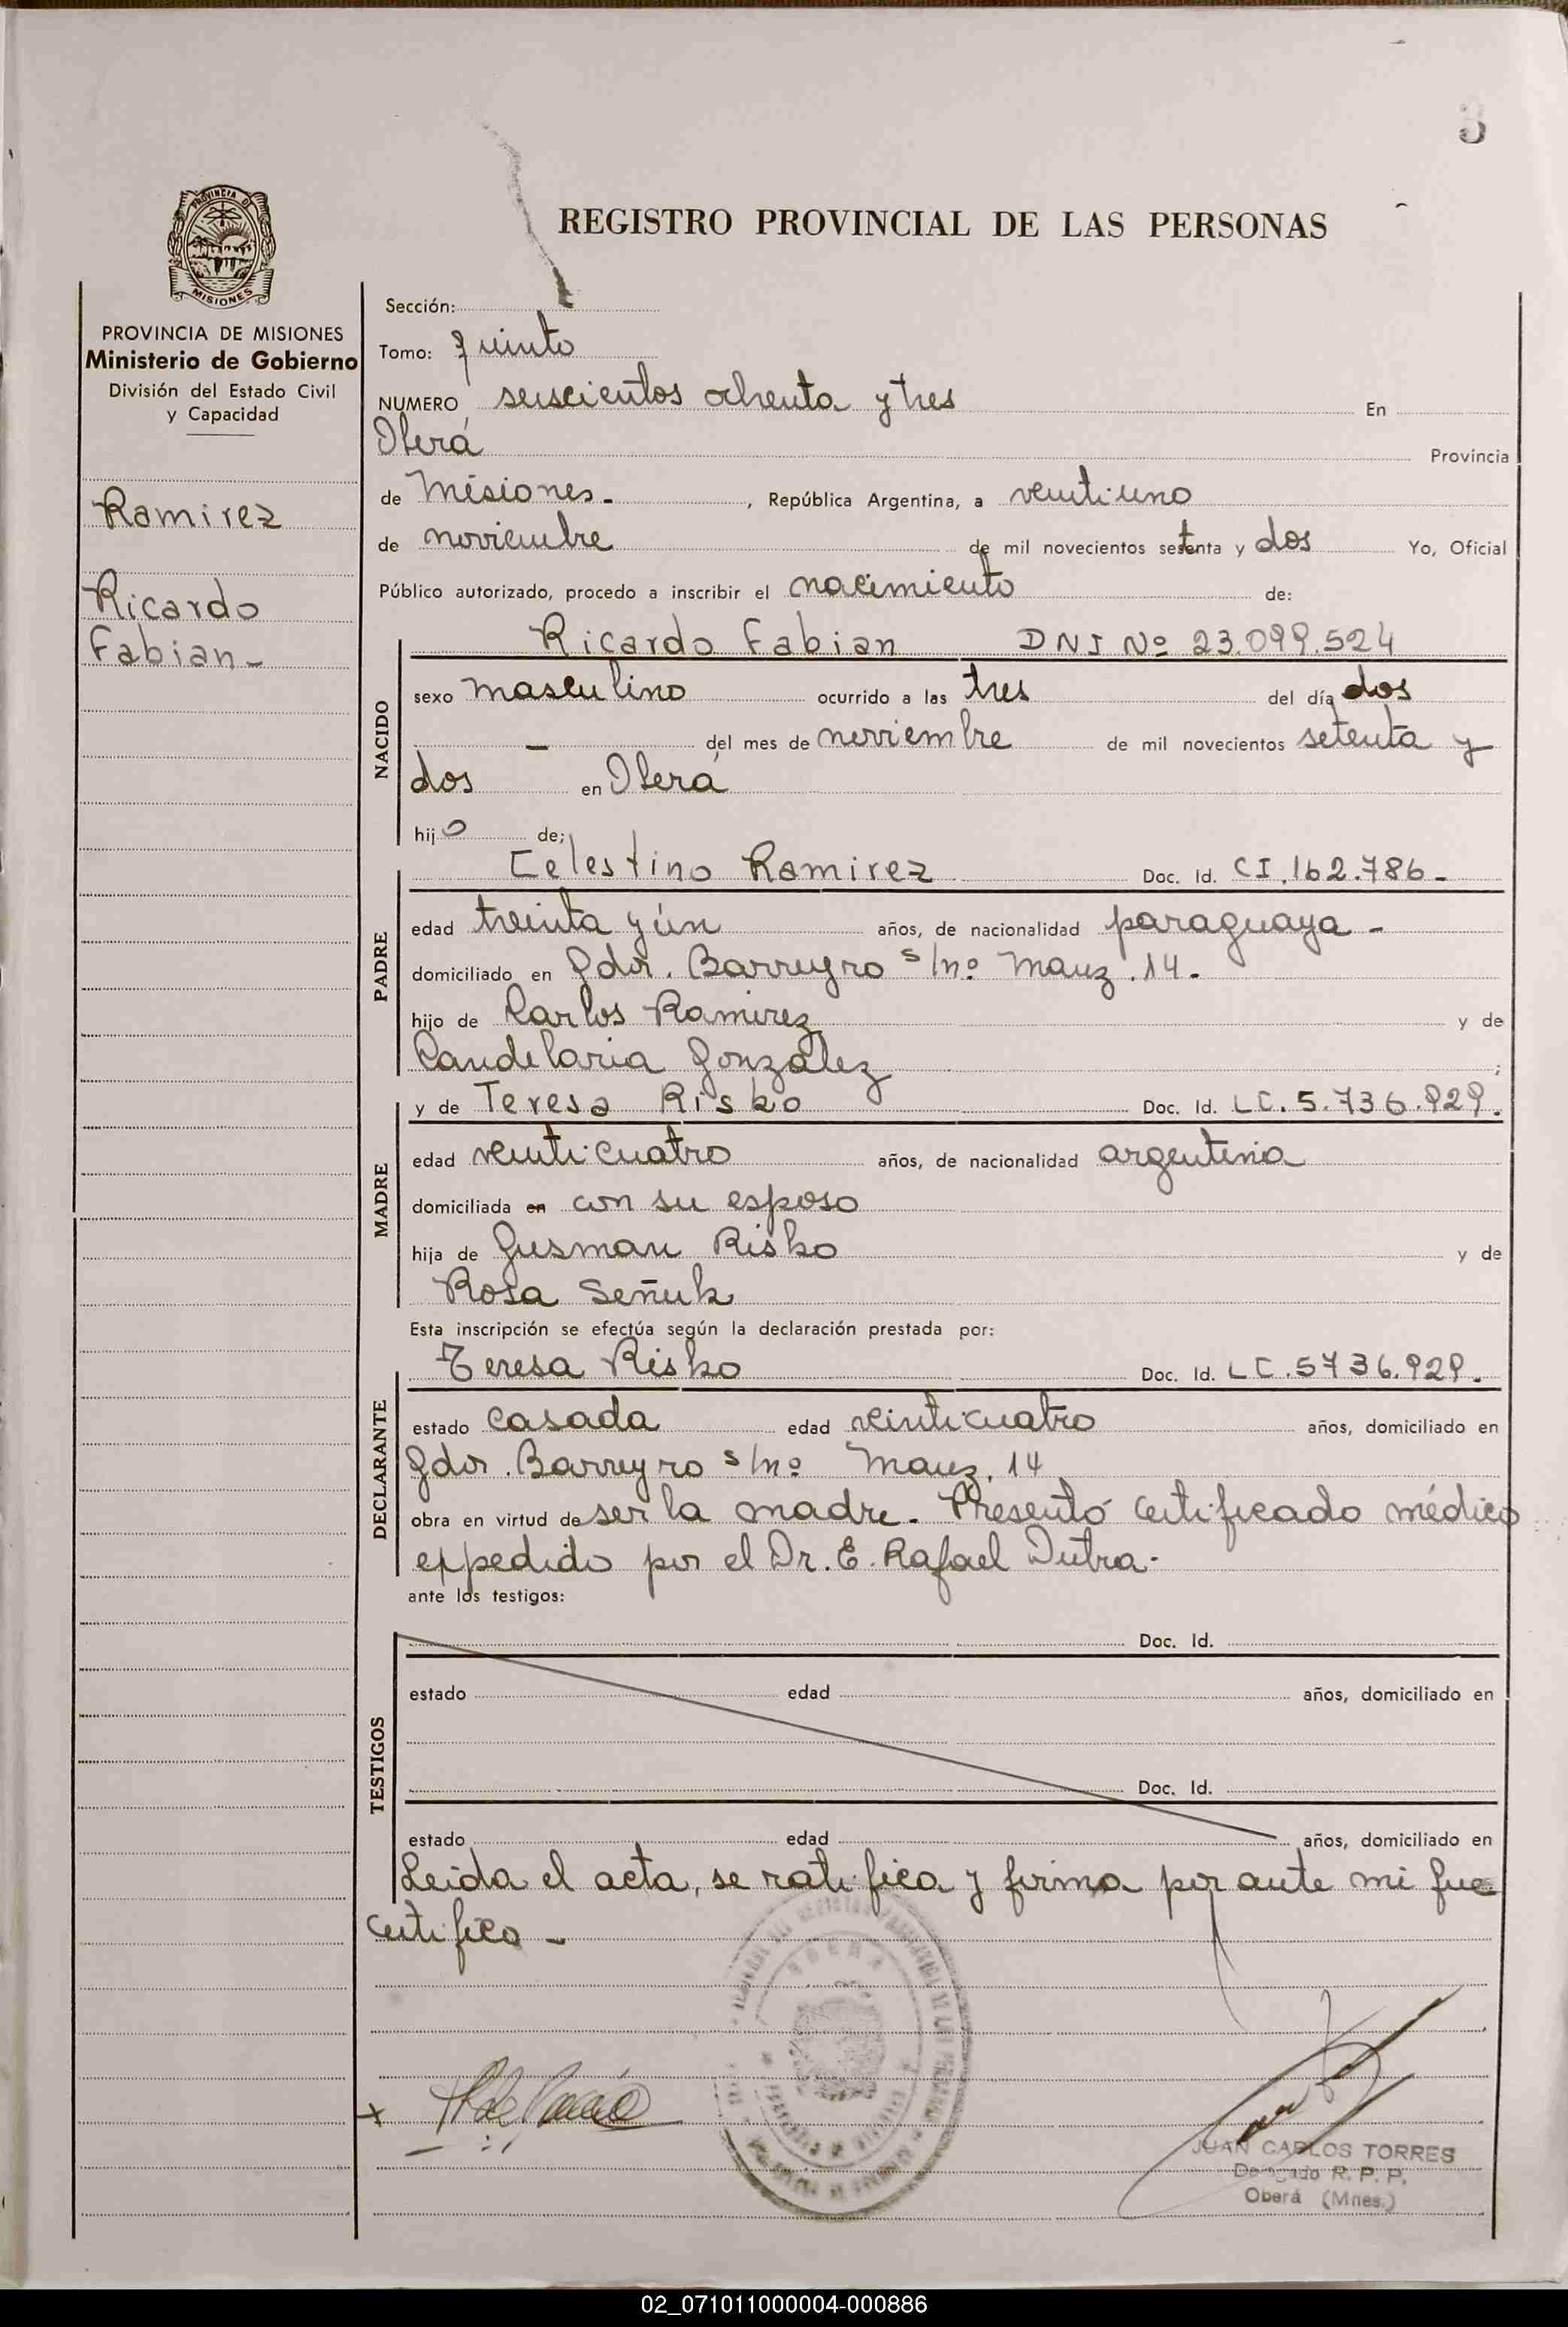 3
PROVINCIA DE
MISIONES
REGISTRO PROVINCIAL DE LAS PERSONAS
PROVINCIA DE MISIONES
Ministerio de Gobierno
División del Estado Civil
y Capacidad
Ramirez
Ricardo
Fabian-
Sección:
Tomo: quinto
NUMERO seiscientos ochenta y tres En
Oberá Provincia
de Misiones- , República Argentina, a veintiuno
de noviembre de mil novecientos setenta y dos Yo, Oficial
Público autorizado, procedo a inscribir el nacimiento de:
NACIDO
Ricardo Fabian DNI Nº 23.099.524
sexo masculino ocurrido a las tres del día dos
— del mes de noviembre de mil novecientos setenta y
dos en Oberá
hijo de;
PADRE
Celestino Ramirez Doc. Id. CI.162.786-
edad treinta y ún años, de nacionalidad paraguaya-
domiciliado en Gdor. Barreyro s/nº Manz.14-
hijo de Carlos Ramirez y de
Candelaria González ;
MADRE
y de Teresa Risko Doc. Id. LC.5.736.929.
edad veinticuatro años, de nacionalidad argentina
domiciliada en con su esposo
hija de Gusman Risko y de
Rosa Señuk
Esta inscripción se efectúa según la declaración prestada por:
DECLARANTE
Teresa Risko Doc. Id. LC.5736.929.
estado casada edad veinticuatro años, domiciliado en
Gdor. Barreyro s/nº Manz. 14
obra en virtud de ser la madre- Presentó certificado médico
expedido por el Dr. E. Rafael Dutra-
ante los testigos:
TESTIGOS
Doc. Id.
estado edad años, domiciliado en
Doc. Id.
estado edad años, domiciliado en
Leida el acta, se ratifica y firma por ante mi que
certifico-
x
JUAN CARLOS TORRES
Delegado R. P. P.
Oberá (Mnes.)
02_071011000004-000886